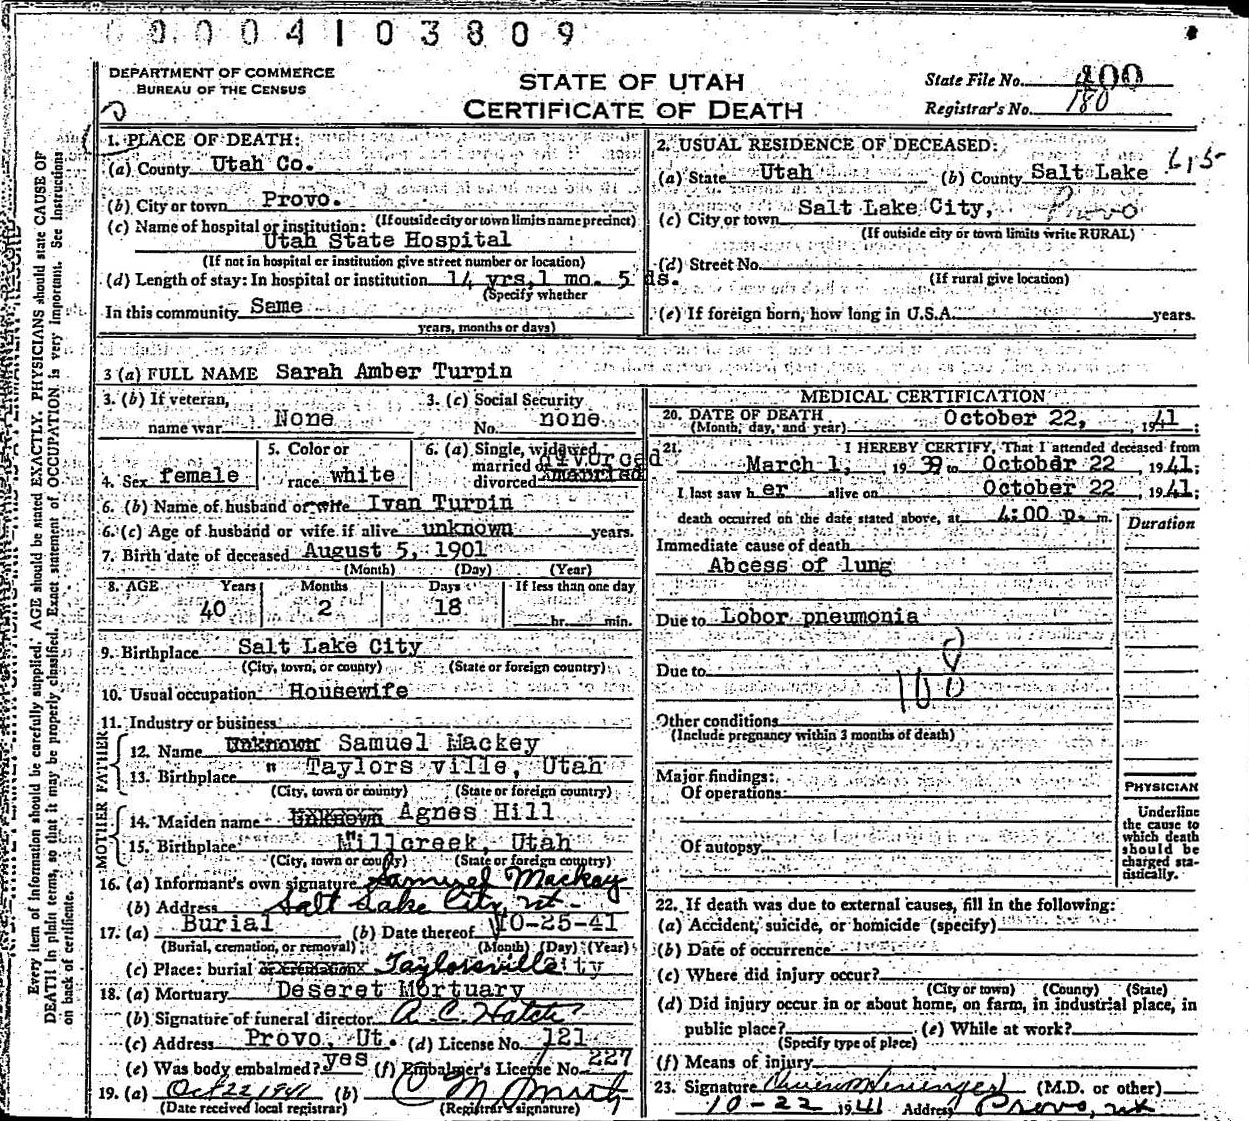 00004103809
DEPARTMENT OF COMMERCE
BUREAU OF THE CENSUS
STATE OF UTAH
CERTIFICATE OF DEATH
State File No. 400
Registrar's No. 180
1. PLACE OF DEATH:
(a) County Utah Co.
(b) City or town Provo.
(If outside city or town limits name precinct)
(c) Name of hospital or institution:
Utah State Hospital
(If not in hospital or institution give street number or location)
(d) Length of stay: In hospital or institution 14 yrs, 1 mo. 5 ds.
(Specify whether
In this community Same
years, months or days)
2. USUAL RESIDENCE OF DECEASED:
(a) State Utah (b) County Salt Lake 615
(c) City or town Salt Lake City, Provo
(If outside city or town limits write RURAL)
(d) Street No.
(If rural give location)
(e) If foreign born, how long in U.S.A. years.
3 (a) FULL NAME Sarah Amber Turpin
3. (b) If veteran,
name war None
3. (c) Social Security
No. none
4. Sex female
5. Color or
race white
6. (a) Single, widowed
married or
divorced divorced married
6. (b) Name of husband or wife Ivan Turpin
6. (c) Age of husband or wife if alive unknown years.
7. Birth date of deceased August 5, 1901
(Month) (Day) (Year)
8. AGE Years Months Days If less than one day
40 2 18 hr. min.
9. Birthplace Salt Lake City
(City, town, or county) (State or foreign country)
10. Usual occupation Housewife
11. Industry or business
FATHER
12. Name Unknown Samuel Mackey
13. Birthplace " Taylors ville, Utah
(City, town or county) (State or foreign country)
MOTHER
14. Maiden name Unknown Agnes Hill
15. Birthplace " Millcreek, Utah
(City, town or county) (State or foreign country)
16. (a) Informant's own signature Samuel Mackay
(b) Address Salt Lake City, Ut.
17. (a) Burial (b) Date thereof 10-25-41
(Burial, cremation, or removal) (Month) (Day) (Year)
(c) Place: burial or cremation Taylorsville City
18. (a) Mortuary Deseret Mortuary
(b) Signature of funeral director A. C. Hatch
(c) Address Provo, Ut. (d) License No. 121
(e) Was body embalmed? yes (f) Embalmer's License No. 227
19. (a) Oct 22 1941 (b)
(Date received local registrar) (Registrar's signature)
MEDICAL CERTIFICATION
20. DATE OF DEATH
(Month, day, and year) October 22, 1941;
21. I HEREBY CERTIFY, That I attended deceased from
March 1, 1939 to October 22 1941;
I last saw her alive on October 22 1941;
death occurred on the date stated above, at 4:00 p. m.
Duration
Immediate cause of death
Abcess of lung
Due to Lobor pneumonia
Due to
108
Other conditions
(Include pregnancy within 3 months of death)
Major findings:
Of operations
Of autopsy
PHYSICIAN
Underline
the cause to
which death
should be
charged sta-
tistically.
22. If death was due to external causes, fill in the following:
(a) Accident, suicide, or homicide (specify)
(b) Date of occurrence
(c) Where did injury occur?
(City or town) (County) (State)
(d) Did injury occur in or about home, on farm, in industrial place, in
public place? (e) While at work?
(Specify type of place)
(f) Means of injury
23. Signature (M.D. or other)
10-22 1941 Address Provo, Ut
Every item of information should be carefully supplied. AGE should be stated EXACTLY. PHYSICIANS should state CAUSE OF
DEATH in plain terms, so that it may be properly classified. Exact statement of OCCUPATION is very important. See Instructions
on back of certificate.